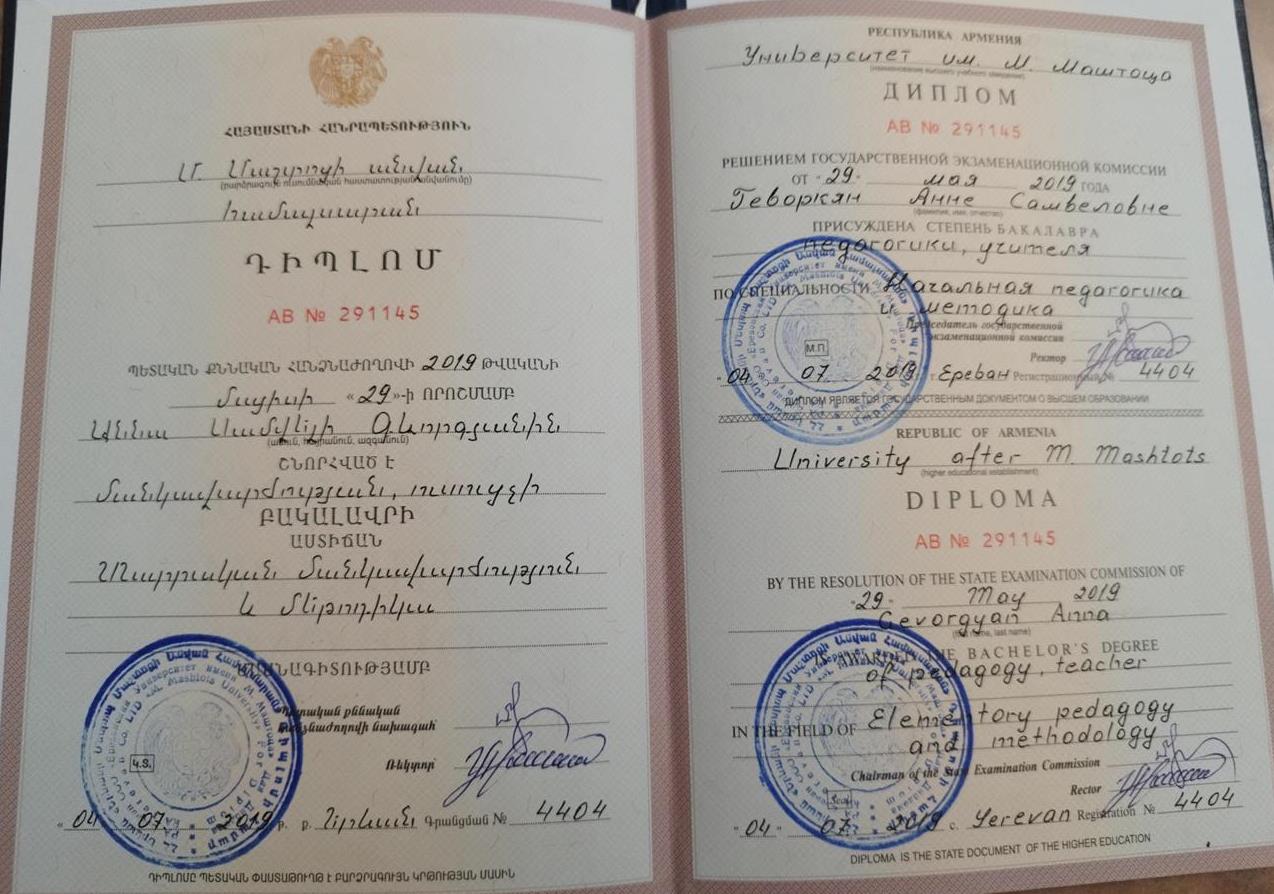 ՀԱՅԱՍՏԱՆԻ ՀԱՆՐԱՊԵՏՈՒԹՅՈՒՆ
Մ. Մաշտոցի անվան
(բարձրագույն ուսումնական հաստատության անվանումը)
համալսարան
ԴԻՊԼՈՄ
AB № 291145
ՊԵՏԱԿԱՆ ՔՆՆԱԿԱՆ ՀԱՆՁՆԱԺՈՂՈՎԻ 2019 ԹՎԱԿԱՆԻ
մայիսի «29»-ի ՈՐՈՇՄԱՄԲ
Աննա Սամվելի Գևորգյանին
(անուն, հայրանուն, ազգանուն)
ՇՆՈՐՀՎԱԾ Է
մանկավարժության, ուսուցչի
ԲԱԿԱԼԱՎՐԻ
ԱՍՏԻՃԱՆ
Տարրական մանկավարժություն
և մեթոդիկա
ՄԱՍՆԱԳԻՏՈՒԹՅԱՄԲ
Պետական քննական
հանձնաժողովի նախագահ
Ռեկտոր
Կ.Տ.
«04» 07 2019 թ. ք. Երևան Գրանցման № 4404
ԴԻՊԼՈՄԸ ՊԵՏԱԿԱՆ ՓԱՍՏԱԹՈՒՂԹ Է ԲԱՐՁՐԱԳՈՒՅՆ ԿՐԹՈՒԹՅԱՆ ՄԱՍԻՆ
РЕСПУБЛИКА АРМЕНИЯ
Университет им. М. Маштоца
(наименование высшего учебного заведения)
ДИПЛОМ
AB № 291145
РЕШЕНИЕМ ГОСУДАРСТВЕННОЙ ЭКЗАМЕНАЦИОННОЙ КОМИССИИ
ОТ "29" мая 2019 ГОДА
Геворкян Анне Самвеловне
(фамилия, имя, отчество)
ПРИСУЖДЕНА СТЕПЕНЬ БАКАЛАВРА
педагогики, учителя
ПО СПЕЦИАЛЬНОСТИ Начальная педагогика
и методика
Председатель государственной
экзаменационной комиссии
Ректор
М.П.
"04" 07 2019 г. Ереван Регистрационный № 4404
ДИПЛОМ ЯВЛЯЕТСЯ ГОСУДАРСТВЕННЫМ ДОКУМЕНТОМ О ВЫСШЕМ ОБРАЗОВАНИИ
REPUBLIC OF ARMENIA
University after M. Mashtots
(higher educational establishment)
DIPLOMA
AB № 291145
BY THE RESOLUTION OF THE STATE EXAMINATION COMMISSION OF
"29" May 2019
Gevorgyan Anna
(first name, last name)
IS AWARDED THE BACHELOR'S DEGREE
of pedagogy, teacher
IN THE FIELD OF Elementory pedagogy
and methodology
Chairman of the State Examination Commission
Rector
Seal
"04" 07 2019 c. Yerevan Registration № 4404
DIPLOMA IS THE STATE DOCUMENT OF THE HIGHER EDUCATION